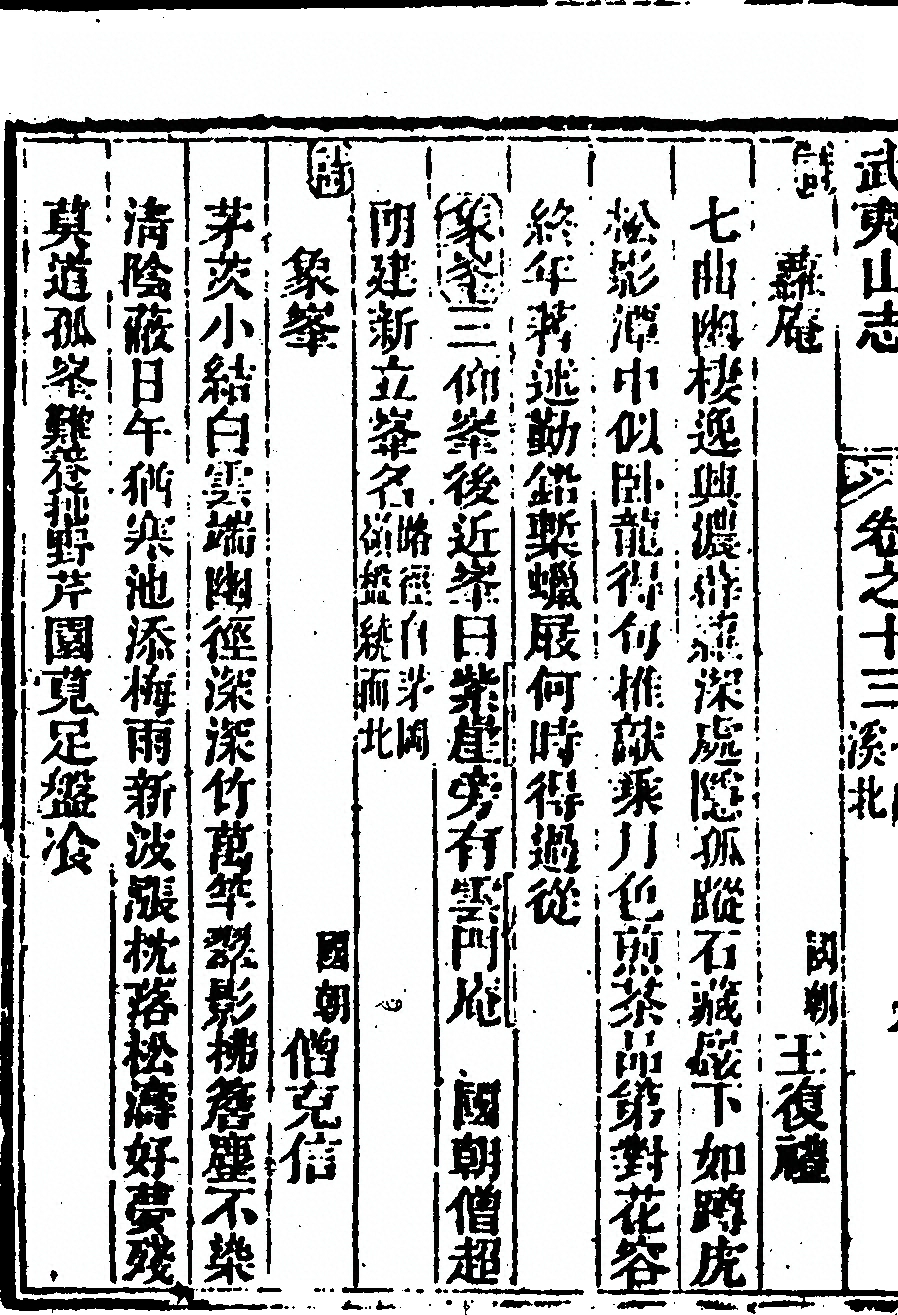 武夷山志 卷之十三 溪北
詩 蘿庵 國朝 王復禮
七曲幽棲逸興濃薜蘿深處隱孤蹤石藏巖下如蹲虎
松影潭中似卧龍得句推敲乘月色煎茶品第對花容
終年著述勤鉛槧蠟屐何時得過從
象峯 三仰峯後近峯曰紫崖旁有雲門庵 國朝僧超
明建新立峯名 路徑自茅岡嶺盤繞而北
詩 象峯 國朝 僧克信
茅茨小結白雲端幽徑深深竹萬竿翠影拂簷塵不染
清陰蔽日午猶寒池添梅雨新波漲枕落松濤好夢殘
莫道孤峯難養拙野芹園莧足盤湌